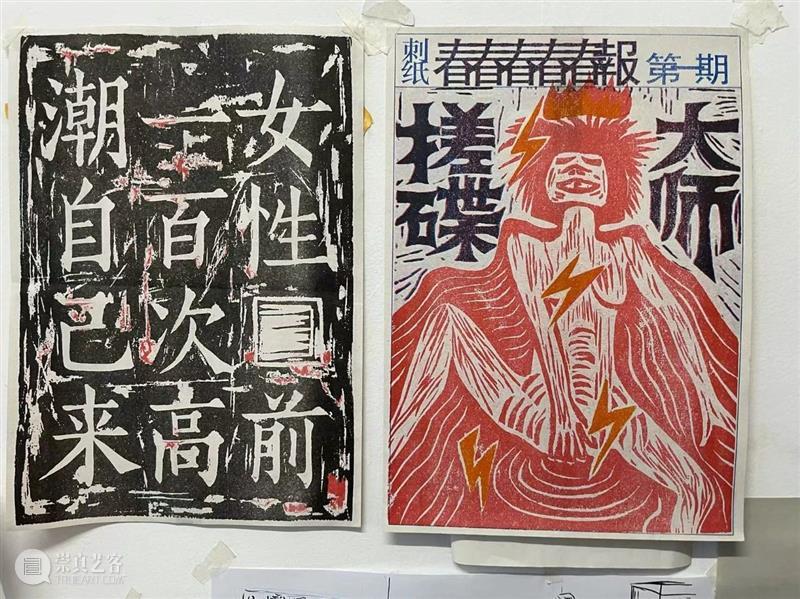 女性□前
一百次高
潮自己来
刺纸
春春春春春報
第一期
搓碟
大师
崇真艺客
TRUEART.COM